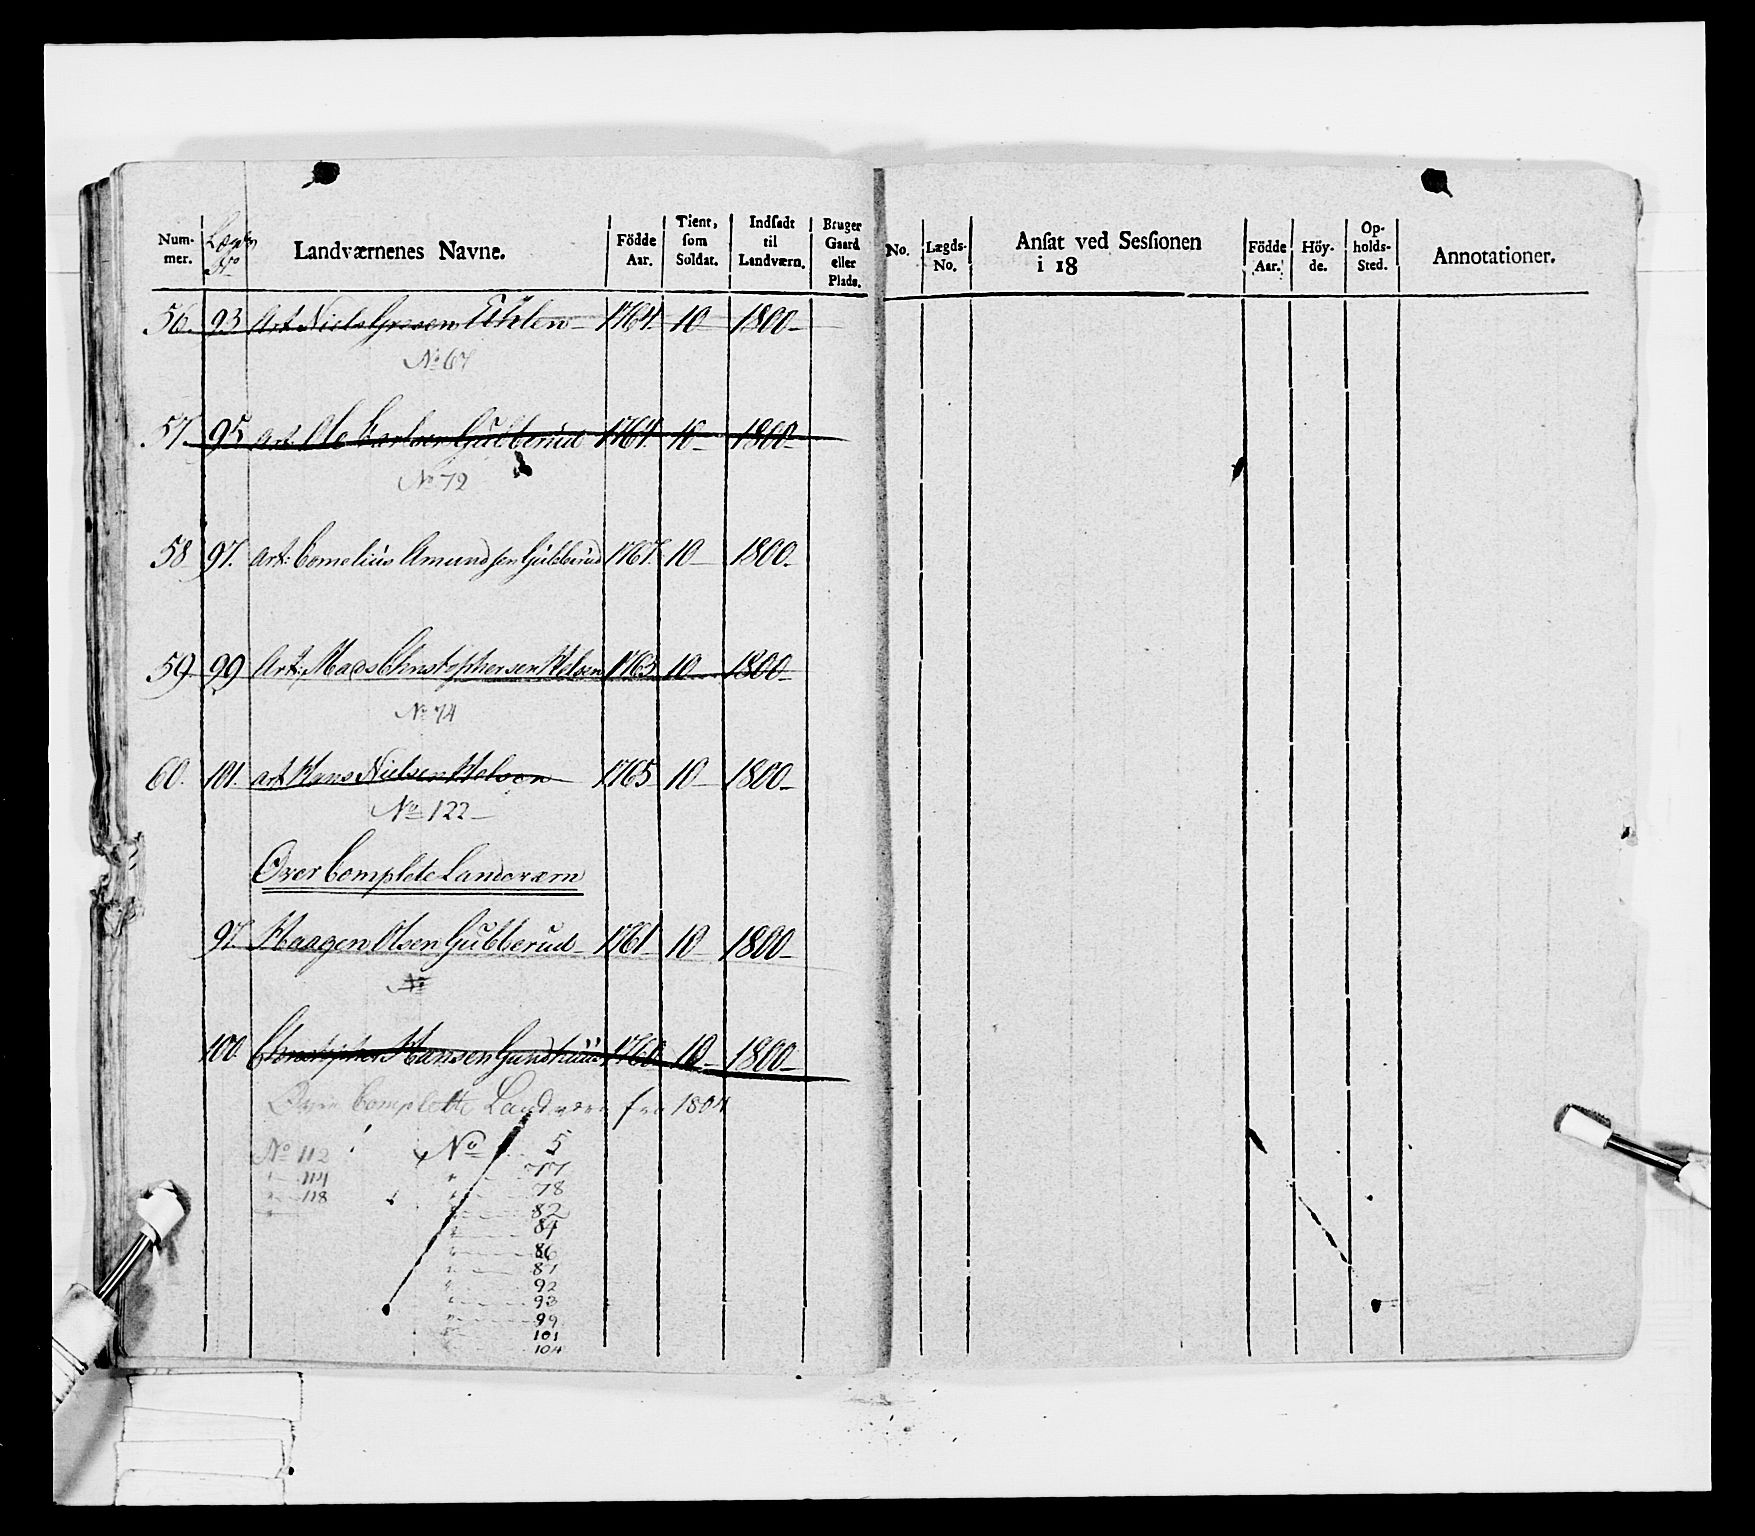 Num-
mer.
No
Landværnenes Navne.
Födde
Aar.
Tient,
som
Soldat.
Indsadt
til
Landværn.
Bruger
Gaard
eller
Plads.
56. 93 Art Niels 1764. 10 - 1800 -
No 67
57. 95 art Ole Gubberud 1764. 10 - 1800 -
No 72
58 97. art: Cornelius Amundsen Gubberud 1767. 10 - 1800.
59. 99 Art: Mads Christophersen 1765 10 - 1800 -
No 74
60. 101. art Hans Nielsen 1765 10 - 1800 -
No 122 -
Over Complete Landværn
97 Haagen Olsen Gubberud - 1761 10 - 1800 -
No
100. Christopher Hansen 1760 10 - 1800 -
Over Complette Landværn fra 1804
No 112
" 114
" 118
No 5
" 77
" 78
" 82
" 84
" 86
" 87
" 92
" 93
" 99
" 101
104
No.
Lægds-
No.
Ansat ved Sessionen
i 18
Födde
Aar.
Höy-
de.
Op-
holds-
Sted.
Annotationer.